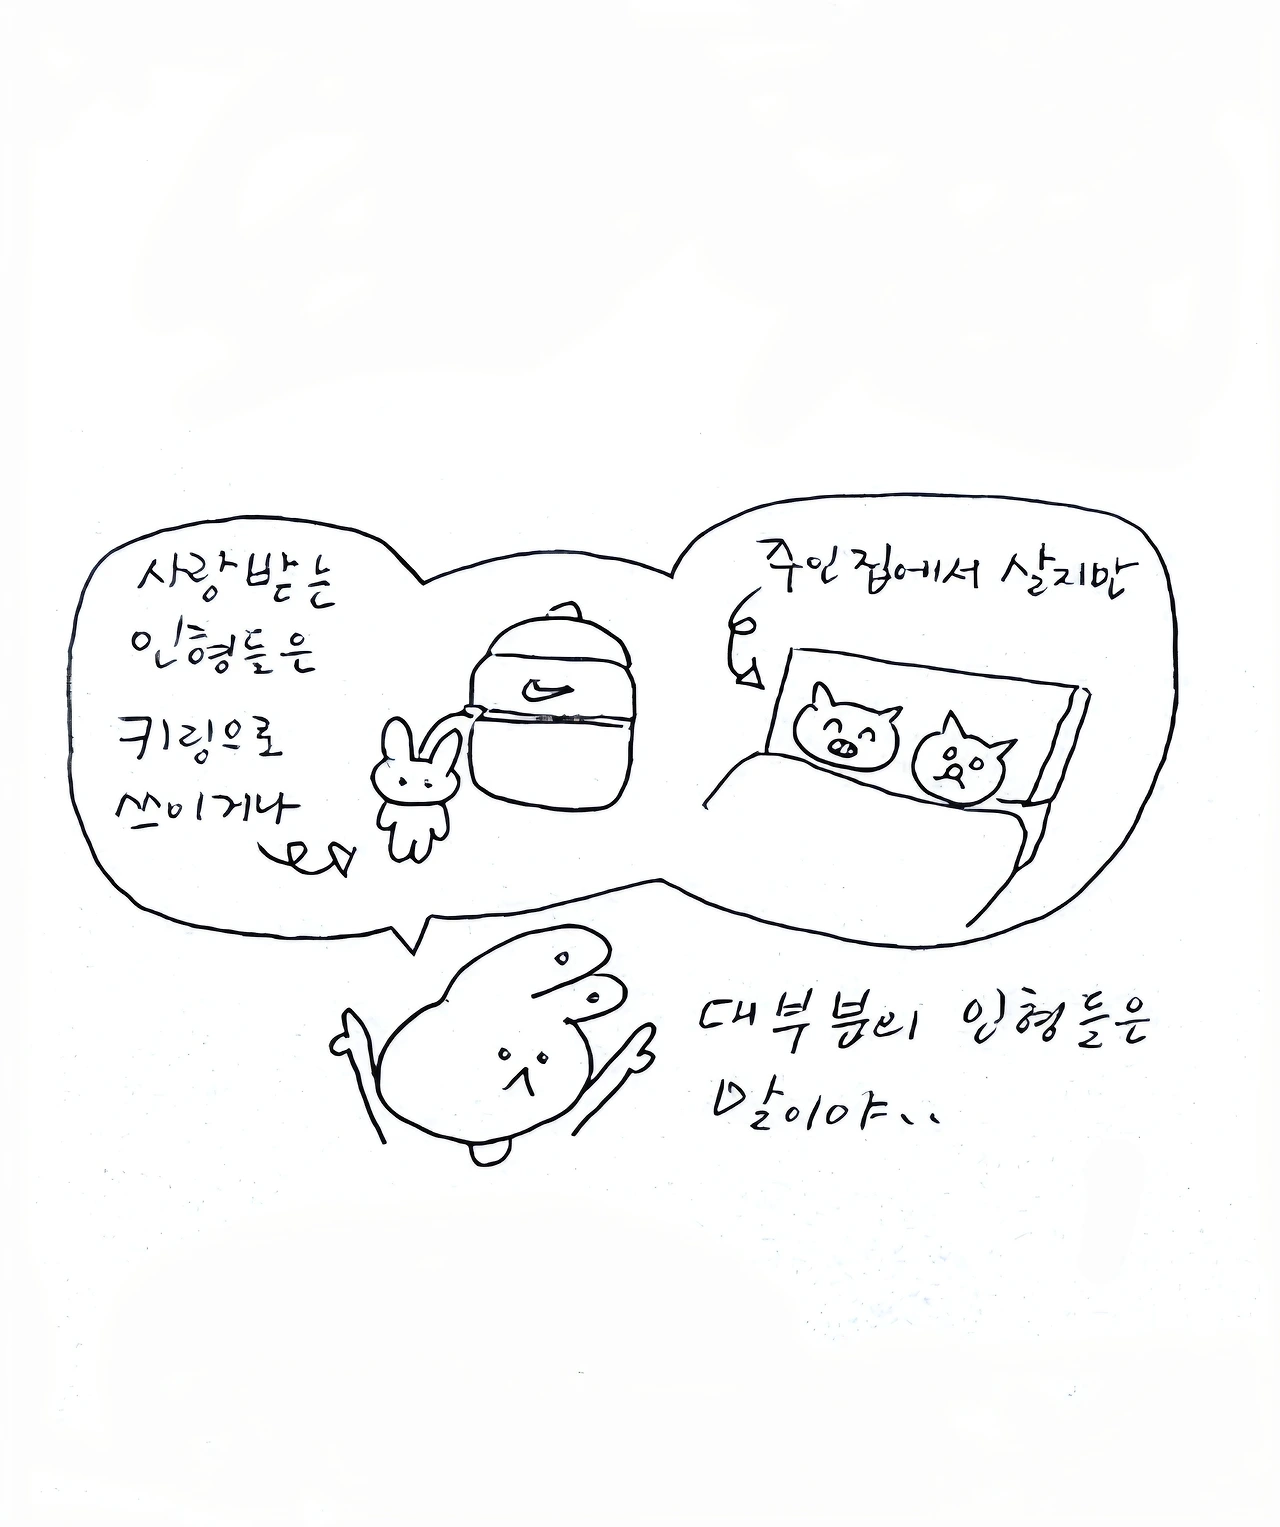 사랑받는
인형들은
키링으로
쓰이거나
주인집에서 살지만
대부분의 인형들은
말이야..